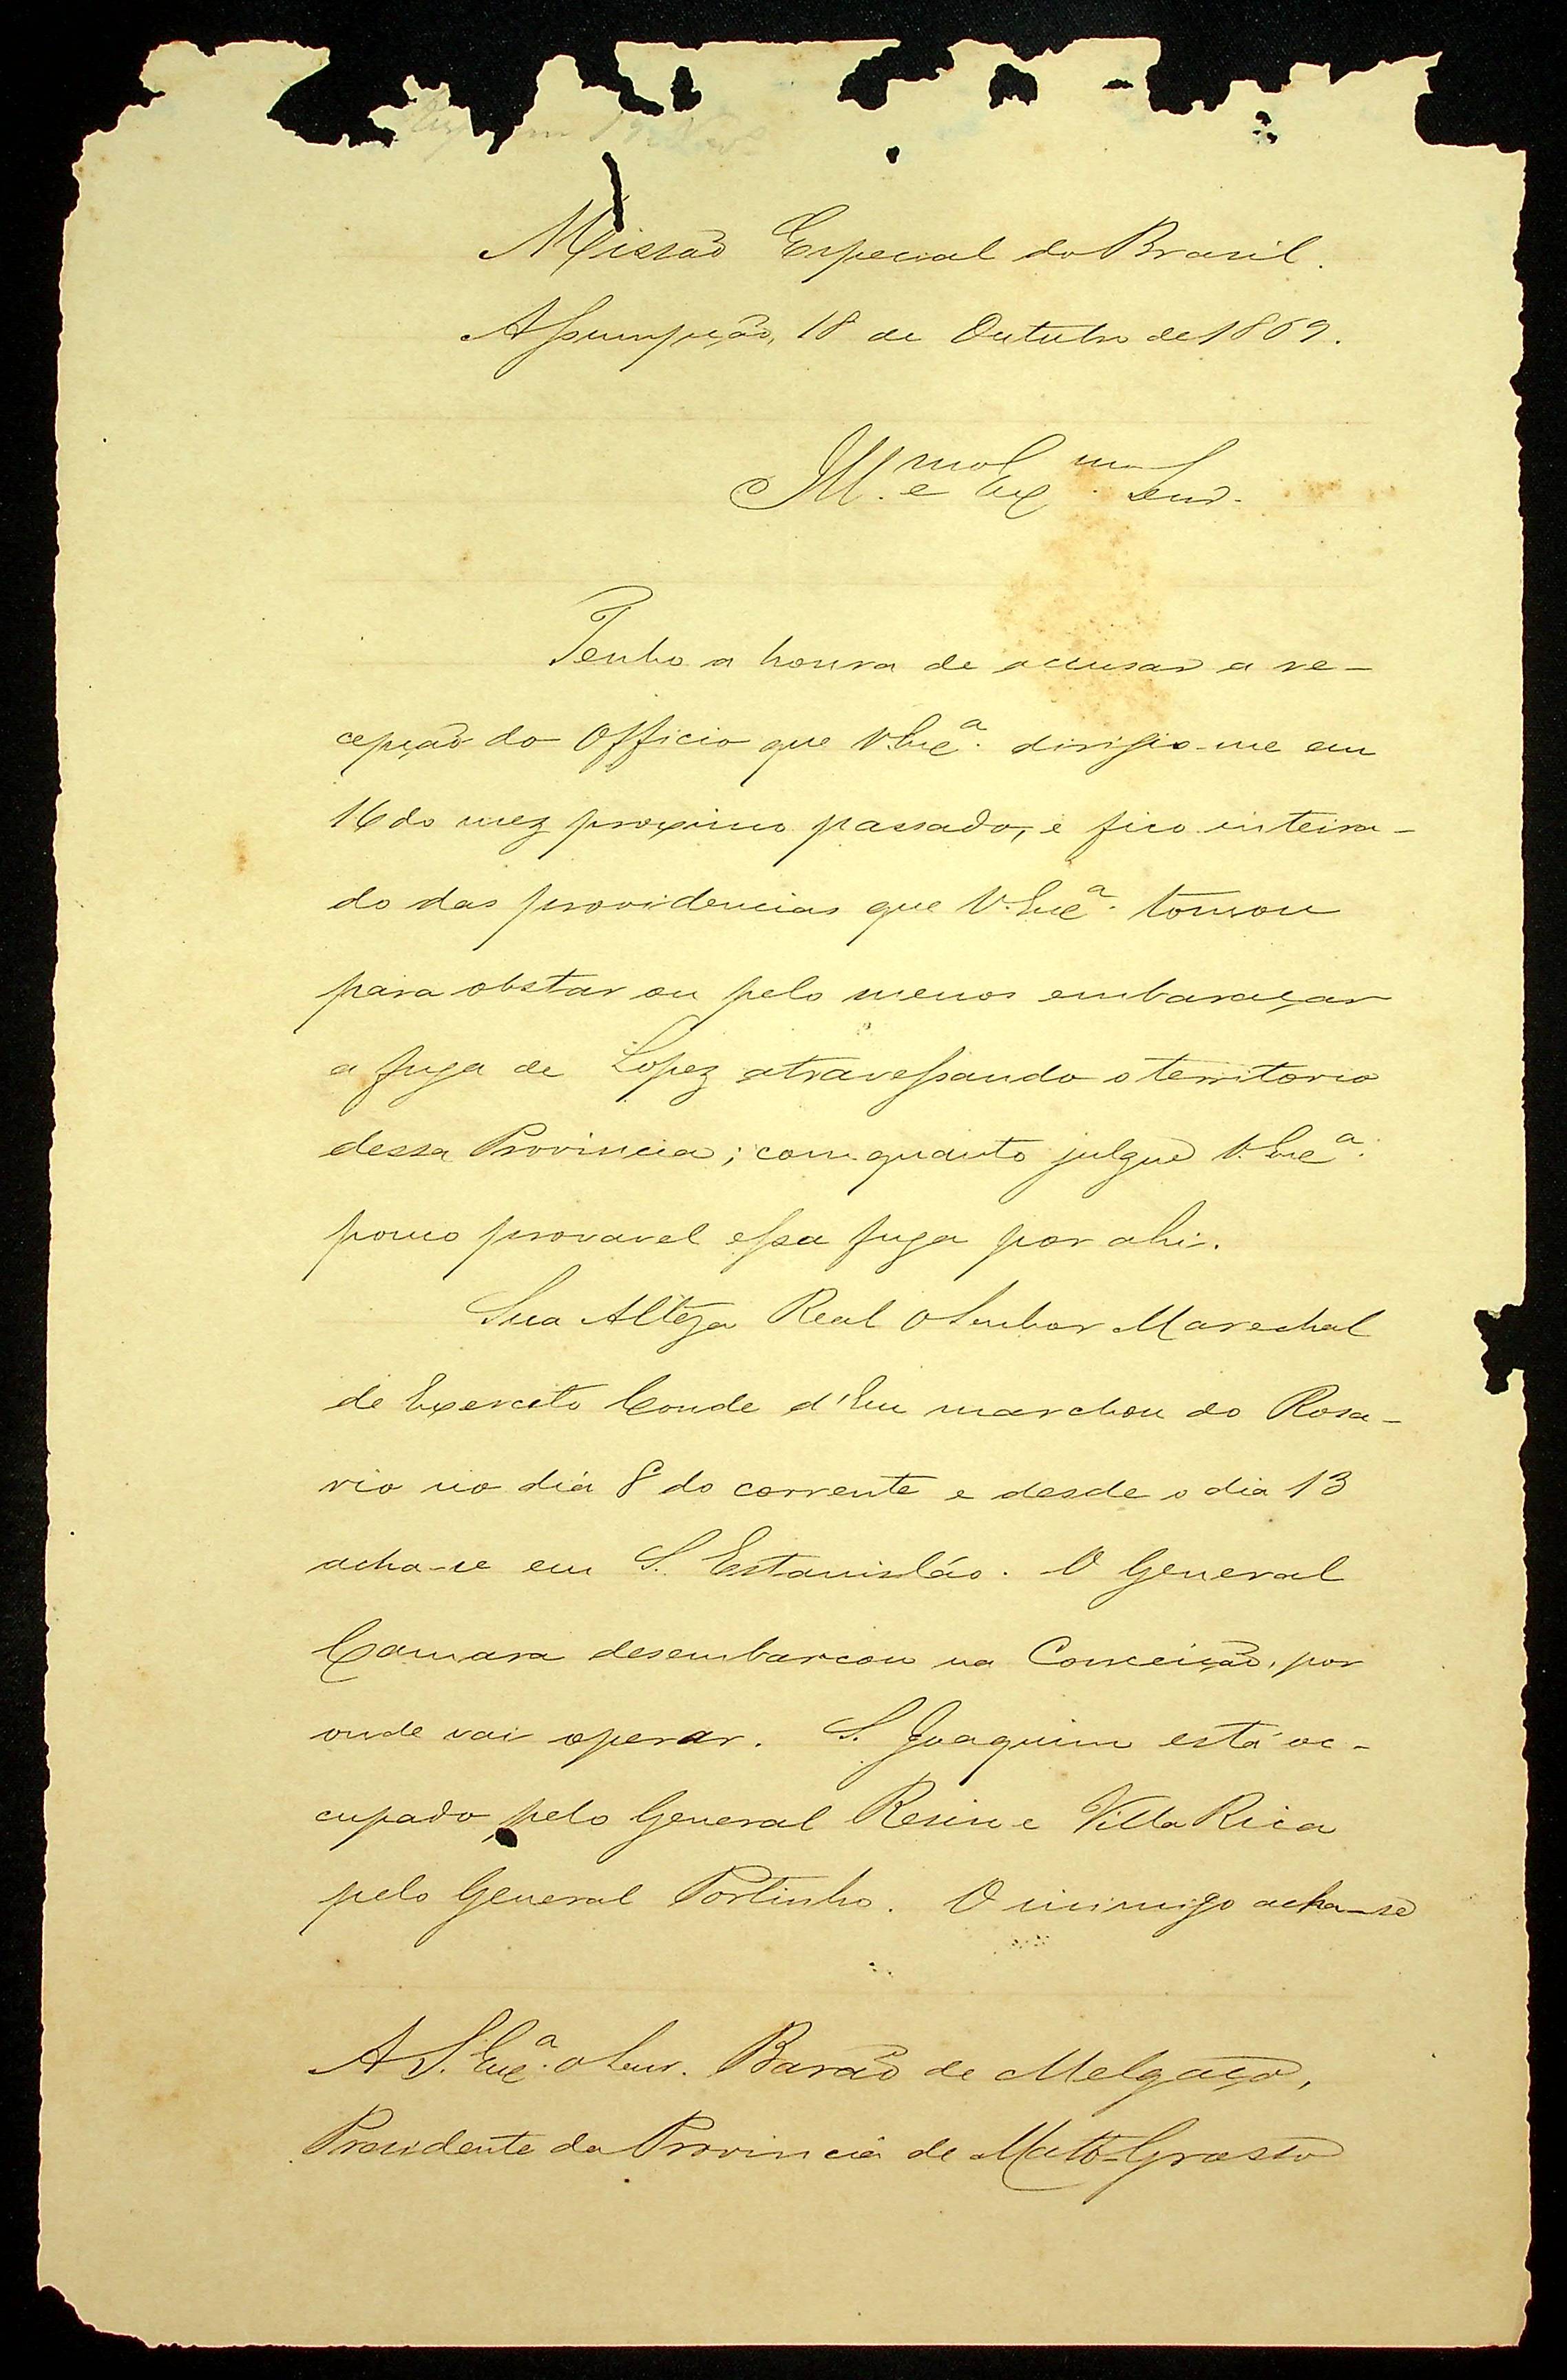 Missão Especial do Brasil.
Assumpção, 18 de Outubro de 1869.
Ill.mo e Exmo. Senr.
Tenho a honra de accusar a re-
cepção do Officio que V. Exca. dirigio-me em
16 do mez proximo passado, e fico inteira-
do das providencias que V. Exca. tomou
para obstar ou pelo menos embaraçar
a fuga de Lopez atravessando o territorio
dessa Provincia; com quanto julgue V. Exca.
pouco provavel essa fuga por ahi.
Sua Alteza Real o Senhor Marechal
de Exercito Conde d'Eu marchou do Rosa-
rio no dia 8 do corrente e desde o dia 13
acha-se em S. Estanisláo. O General
Camara desembarcou na Conceição, por
onde vai operar. S. Joaquim está oc-
cupado pelo General Resin e Villa Rica
pelo General Portinho. O inimigo acha-se
A S. Exca. o Senr. Barão de Melgaço,
Presidente da Provincia de Matto-Grosso